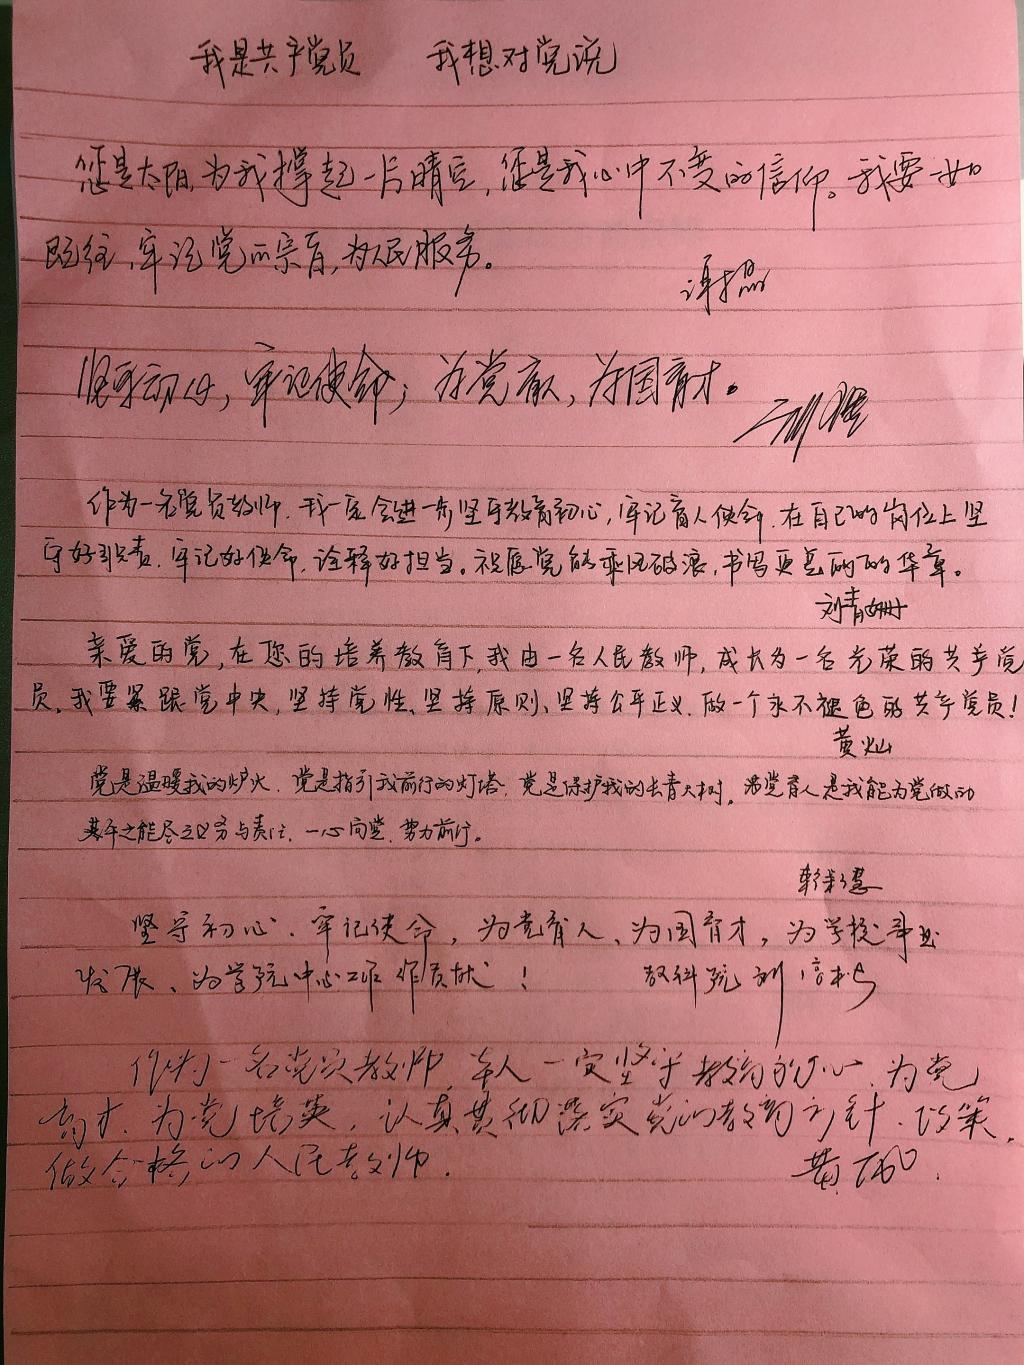 我是共产党员 我想对党说
您是太阳,为我撑起一片晴空,您是我心中不变的信仰。我要一如
既往,牢记党的宗旨,为人民服务。
坚守初心,牢记使命;为党育人,为国育才。
作为一名党员教师,我一定会进一步坚守教育初心,牢记育人使命,在自己的岗位上坚
守好职责,牢记好使命,诠释好担当。祝愿党能乘风破浪,书写更美丽的华章。
刘青姗
亲爱的党,在您的培养教育下,我由一名人民教师,成长为一名光荣的共产党
员。我要紧跟党中央,坚持党性、坚持原则、坚持公平正义,做一个永不褪色的共产党员!
黄灿
党是温暖我的炉火,党是指引我前行的灯塔,党是保护我的长青大树。为党育人是我能为党做的
尽义务与责任,一心向党,努力前行。
坚守初心、牢记使命,为党育人、为国育才,为学校事业
发展、为学院中心工作作贡献! 教科院 刘
作为一名党员教师,本人一定坚守教育初心,为党
育才,为党培英,认真贯彻落实党的教育方针、政策,
做合格的人民教师. 黄